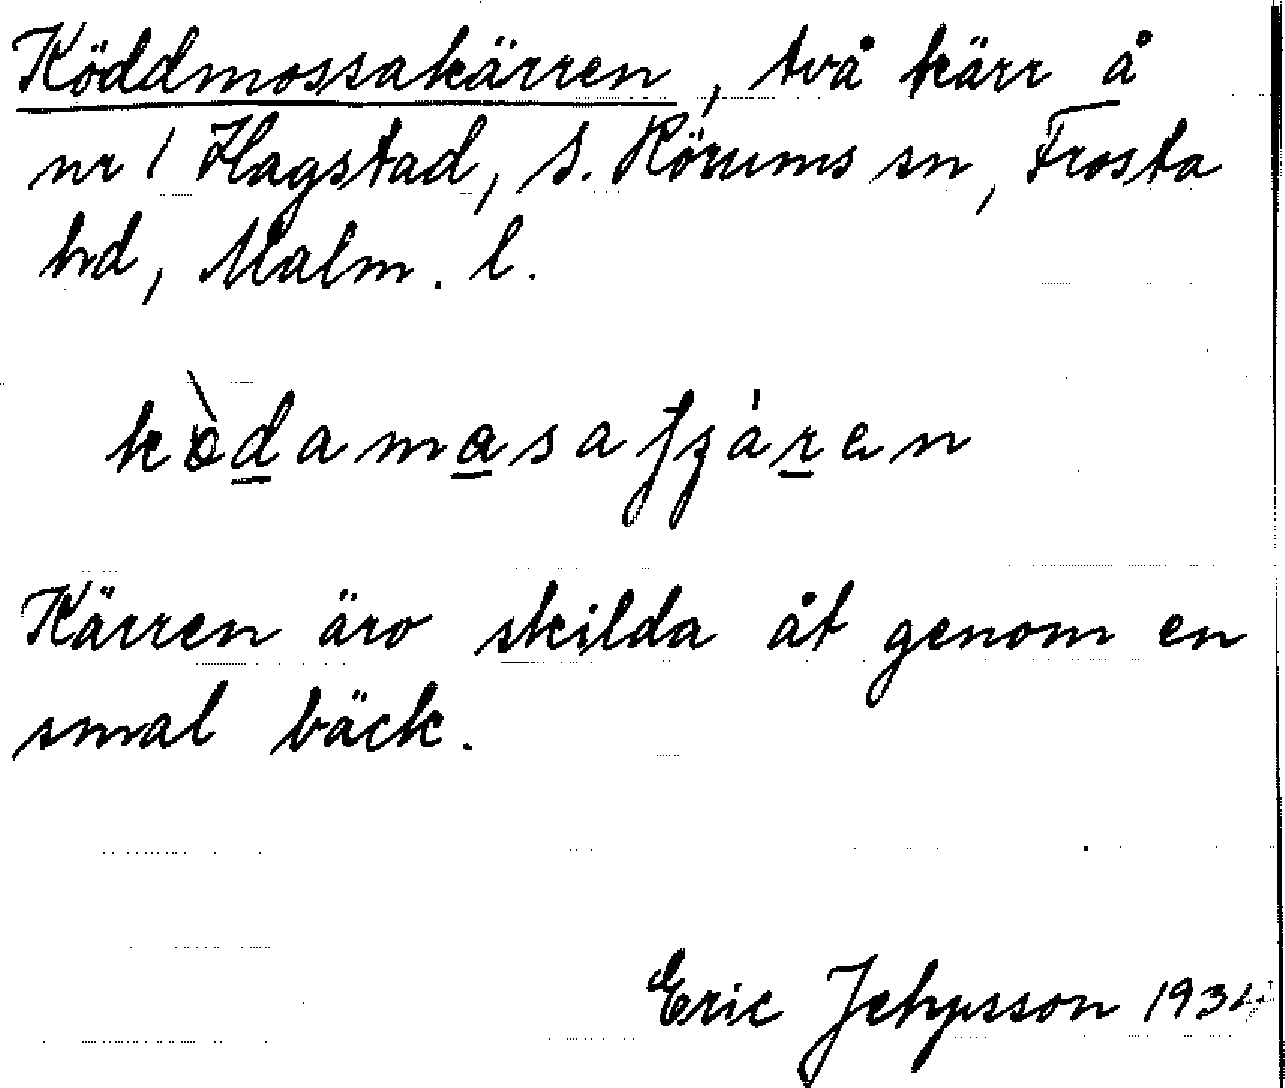 Köddmossakärren, två kärr å
nr 1 Hagstad, S. Rörums sn, Frosta
hd, Malm. l.
Kärren äro skilda åt genom en
smal bäck.
Eric Jehpsson 1934